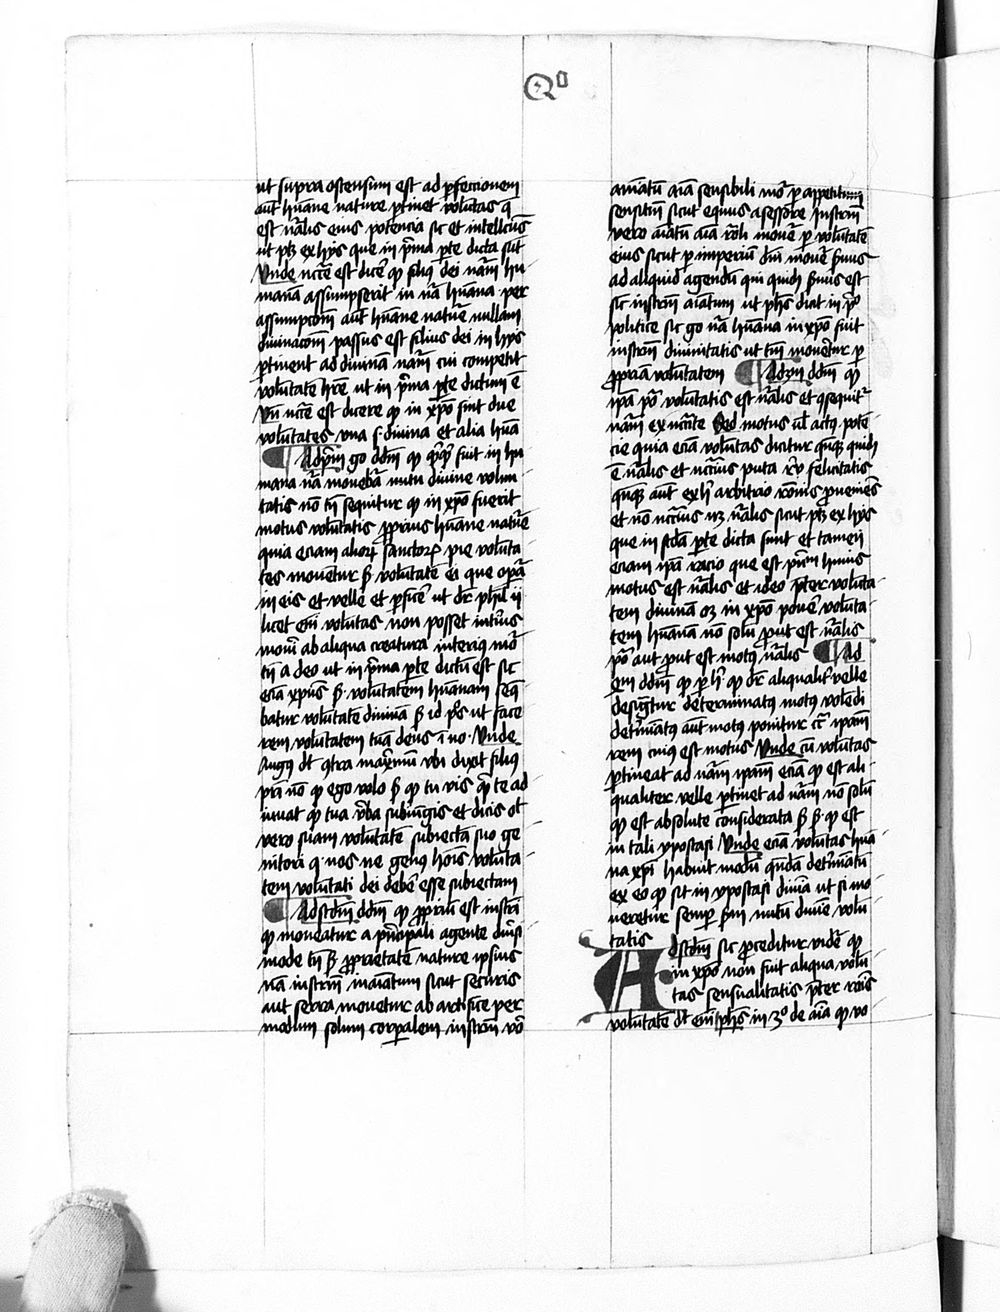 Qº
ut supra ostensum est ad ꝑfectionem
aut hūane nature ꝑtinet voluntas q̄
est nālis eius potencia sic et intellectus
ut ptꝫ ex hijs que in p̄ma ꝑte dicta sūt
Vnde nccē est dicē ꝙ filiꝰ dei nām hu
manā assumpserit in nā hūana per
assumptōnē aūt hūane natuē nullam
diminucōnꝫ passus est filius dei in hijs
ꝑtinent ad diuinā nām cui competit
voluntatē hr̄e ut in p̄ma ꝑte dictum ē
Vn̄ nccē est dicere ꝙ in xp̄o sint due
voluntates vna s. diuina et alia hūā
Ad pm̄ go dd̄m ꝙ q̄cqꝫ fuit in hu
mana nā mouebāt nutu diuine volun
tatis nō tn̄ sequitur ꝙ in xp̄o fuerit
motus voluntatis ꝓprius hūane natuē
quia eciam alioꝝ sanctoꝝ pie volūta
tes mouentur ẜ voluntatē ei que opāt
in eis et velle et ꝑficē ut dr̄ phil ij
licet em̄ voluntas non posset interiꝰ
mouī ab aliqua creatura interiꝰ mōr
tn̄ a deo ut in p̄ma ꝑte dictū est sic
eciā xpūs ẜ voluntatem hūanam seq̄
batur voluntatē diuinā ẜ id ps̄ ut face
rem voluntatem tuā deus m̄ no. Vnde
Augꝰ dt 9tra maximū vbi dixit filiꝰ
pr̄i nō ꝙ ego volo ẜ ꝙ tu vis q̄ te ad
iuuat ꝙ tua v̄ba subiūgis et dicis oñ
vero suam voluntatē subiectā suo ge
nitori q. nos ne genꝰ hoīs volūta
tem voluntati dei debē esse subiectam
Ad scdm̄ dd̄m ꝙ ꝓpriū est instrī
ꝙ moueatur a p̄ncipali agente diūsi
mode tn̄ ẜ ꝓprietatē nature ipsius
nā instrm̄ inaīatum sicut securis
aut serra mouetur ab artifice per
modum solum corꝑalem instrm̄ vō
aīatū aīā sensibili mōr ꝑ appetitum
sensitiū sicut equus a sessore Instrm̄
vero aīatū aīā rōli mouēt ꝑ volūtatē
eius sicut ꝑ imperiū dn̄i mouēt ẜuus
ad aliquid agendū qui quidē ẜuus est
sic instrm̄ aīatum ut phs̄ dicit in pº
politice sic go nā hūana in xp̄o fuit
instrm̄ diuinitatis ut tn̄ mouētur ꝑ
ꝓpriā voluntatem Ad 3m dd̄m ꝙ
ip̄a pō voluntatis est nālis et 9sequitʳ
nām ex nccīte Sed motus ul actꝰ potē
cie quia eciā voluntas dicitur qn̄qꝫ quidē
ē nālis et nccīus puta rō felicitatis
qn̄qꝫ aūt ex li arbitrio rōnis ꝓueniēs
et nō nccīus nꝫ nālis sicut ptꝫ ex hijs
que in scd̄a ꝑte dicta sunt et tamen
eciam ip̄a racio que est pn̄m huius
motus est nālis et ideo p̄ter volunta
tem diuinā oꝫ in xp̄o ponē volūta
tem hūanam nō solū ꝓut est nālis
pō aut ꝓut est motꝰ nālis Ad
qm̄ dd̄m ꝙ ꝑ li ꝙ dr̄ aliqualit̄ velle
designatur determinatꝰ motꝰ volēdi
detīatus aūt motꝰ ponitur cr̄ ip̄am
rem cuiꝰ est motus Vnde cū voluntas
ꝑtineat ad nām ip̄am eciā ꝙ est ali
qualiter velle ꝑtinet ad nām nō solū
ꝙ est absolute considerata ẜ ẜ ꝙ est
in tali ypostasi Vnde eciā voluntas hūa
na xpī habuit modū quēdā detīatū
ex eo ꝙ sit in ypostasi diuīa ut si mo
ueretur semꝑ ẜm nutū diuine volū
tatis Ad scdm̄ sic ꝓceditur vidē ꝙ
in xp̄o non fuit aliqua volū
tas sensualitatis p̄ter rōis
voluntatē dt em̄ phs̄ in 3º de aīa ꝙ vo